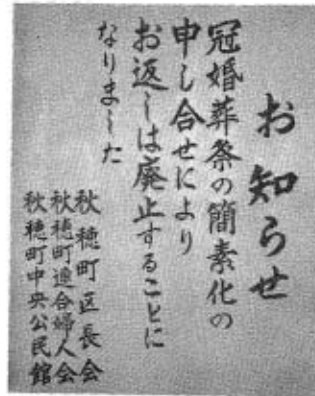 お知らせ
冠婚葬祭の簡素化の
申し合せにより
お返しは廃止することに
なりました
秋穂町区長会
秋穂町連合婦人会
秋穂町中央公民館